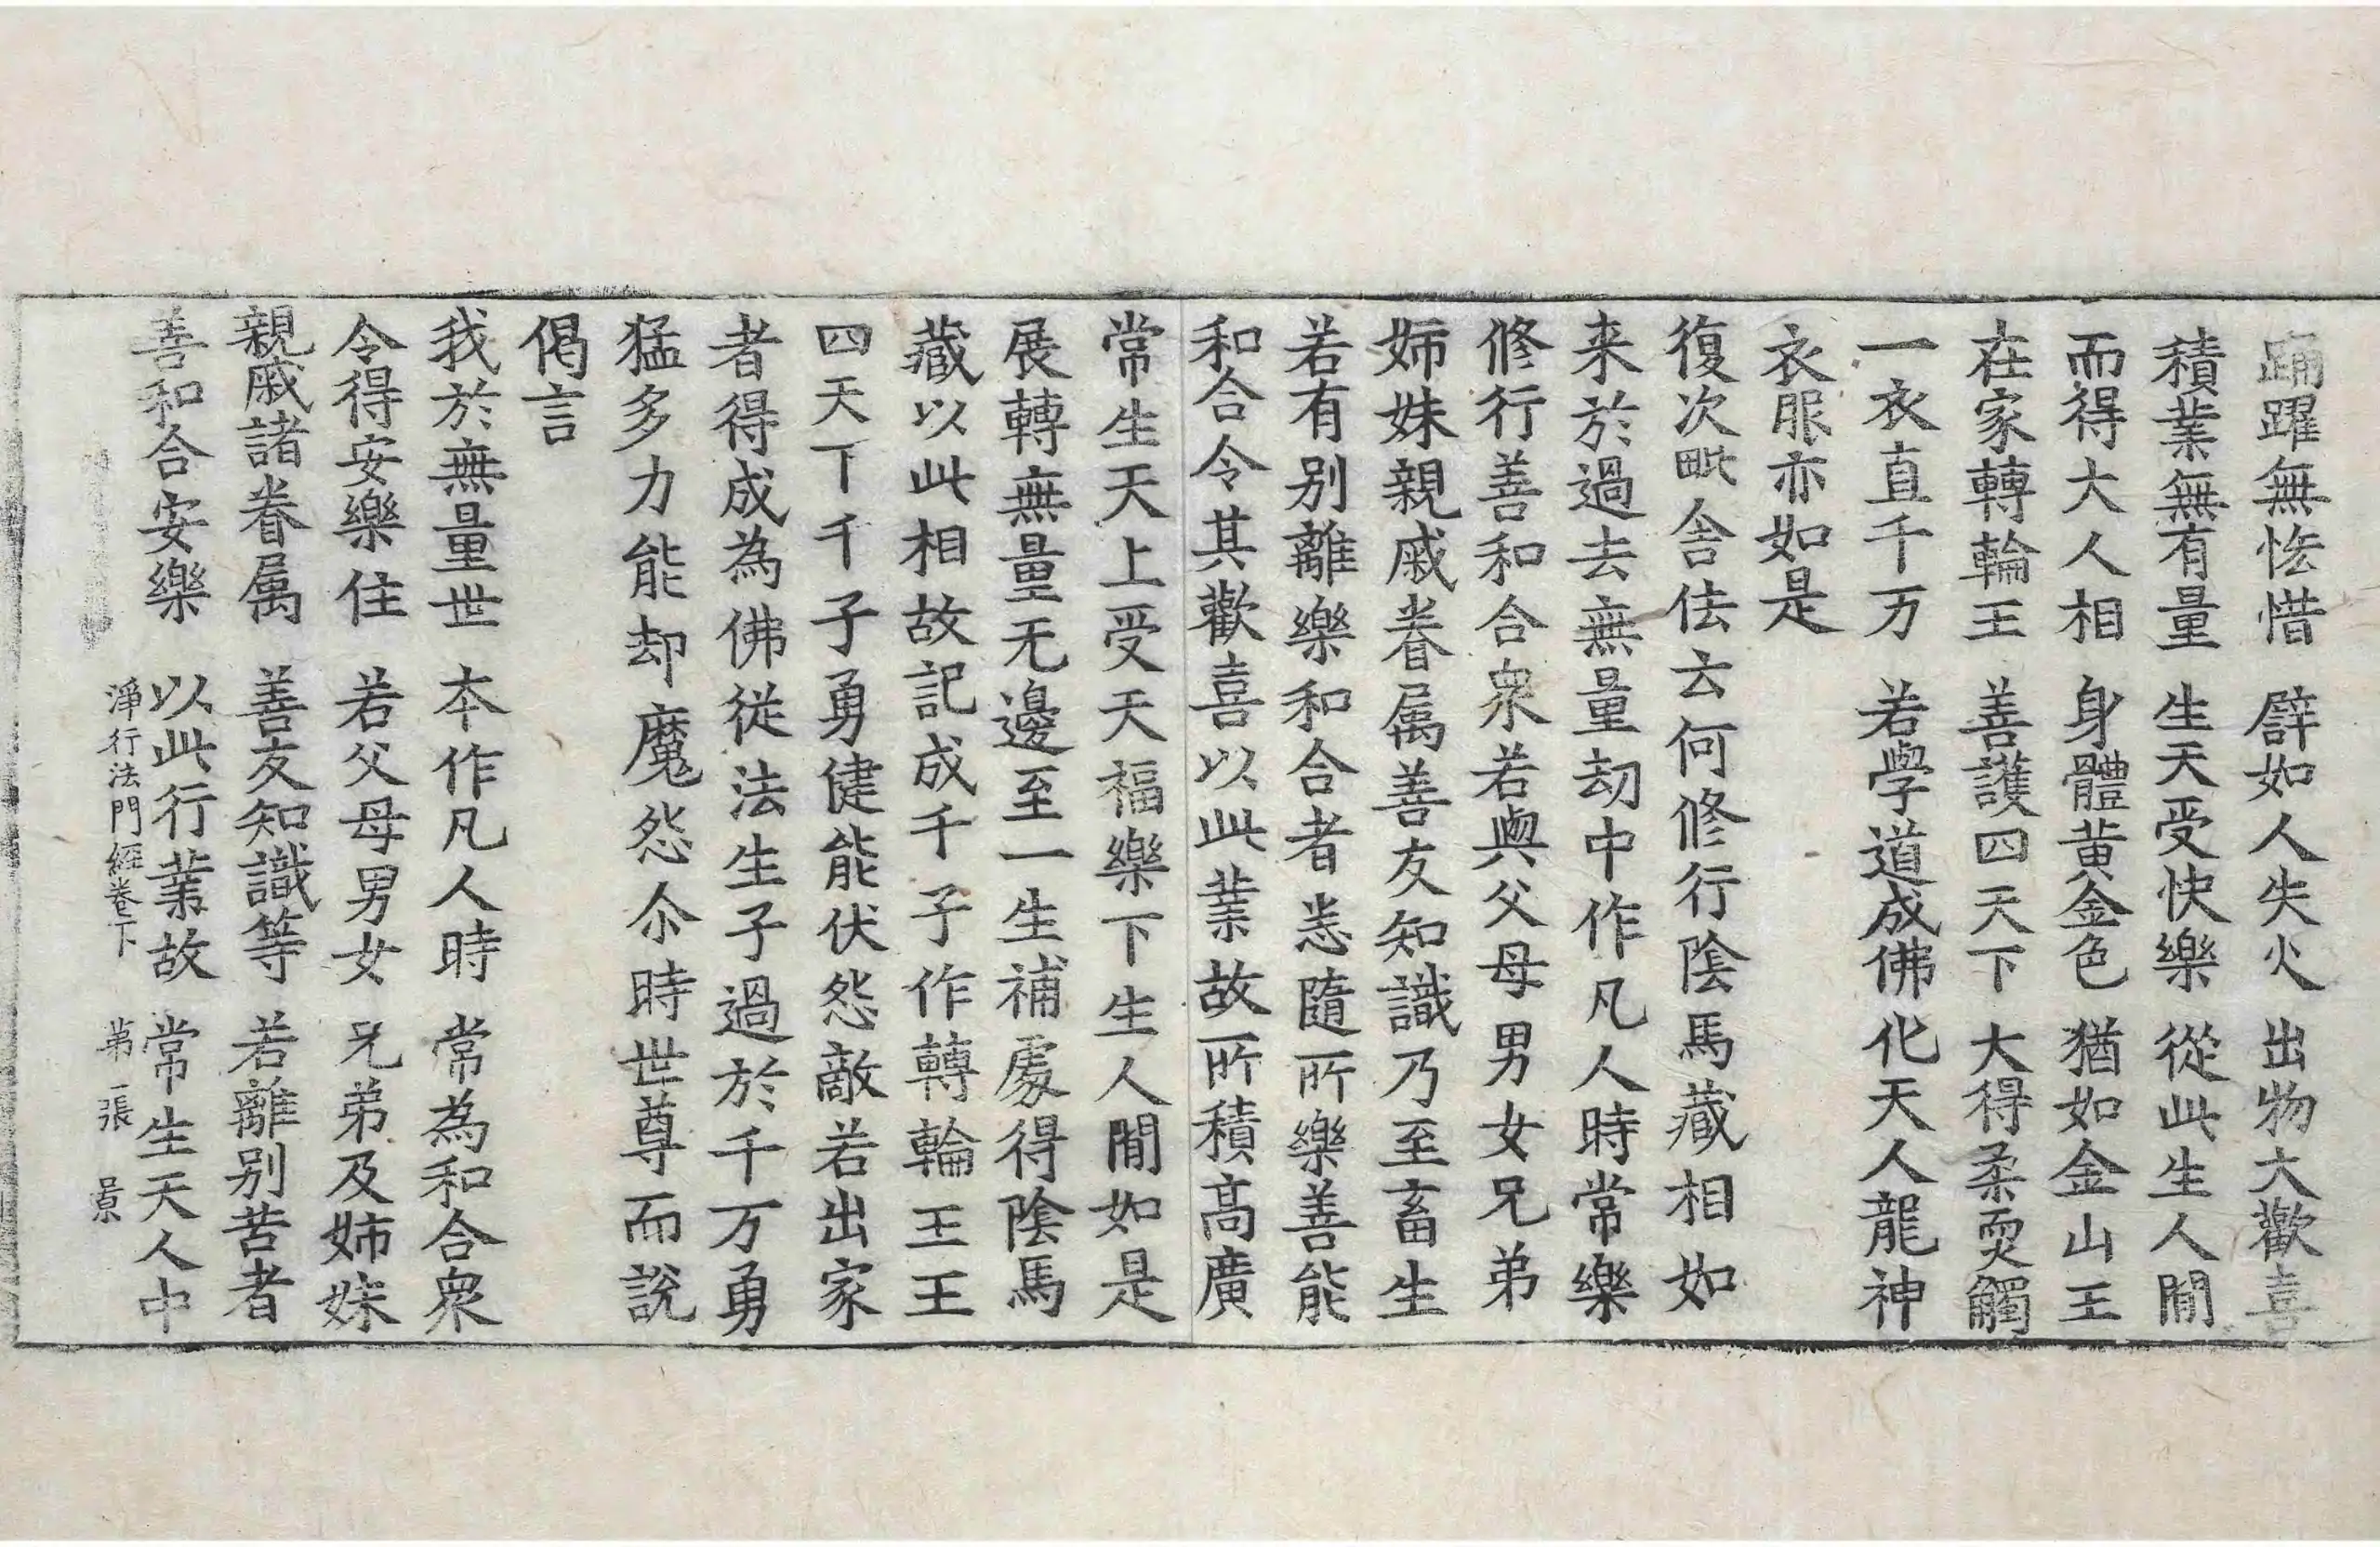 踊躍無悋惜　譬如人失火　出物大歡喜
積業無有量　生天受快樂　從此生人閒
而得大人相　身體黄金色　猶如金山王
在家轉輪王　善護四天下　大得柔耎觸
一衣直千万　若學道成佛　化天人龍神
衣服亦如是
復次毗舍佉云何修行陰馬藏相如
来於過去無量劫中作凡人時常樂
修行善和合衆若與父母男女兄弟
姉妹親戚眷属善友知識乃至畜生
若有别離樂和合者悉隨所樂善能
和合令其歡喜以此業故所積高廣
常生天上受天福樂下生人閒如是
展轉無量无邊至一生補處得陰馬
藏以此相故記成千子作轉輪王王
四天下千子勇健能伏怨敵若出家
者得成為佛從法生子過於千万勇
猛多力能却魔怨尒時世尊而說
偈言
我於無量世　本作凡人時　常為和合衆
令得安樂住　若父母男女　兄弟及姉妹
親戚諸眷属　善友知識等　若離别苦者
善和合安樂　以此行業故　常生天人中
淨行法門經卷下　第一張　景